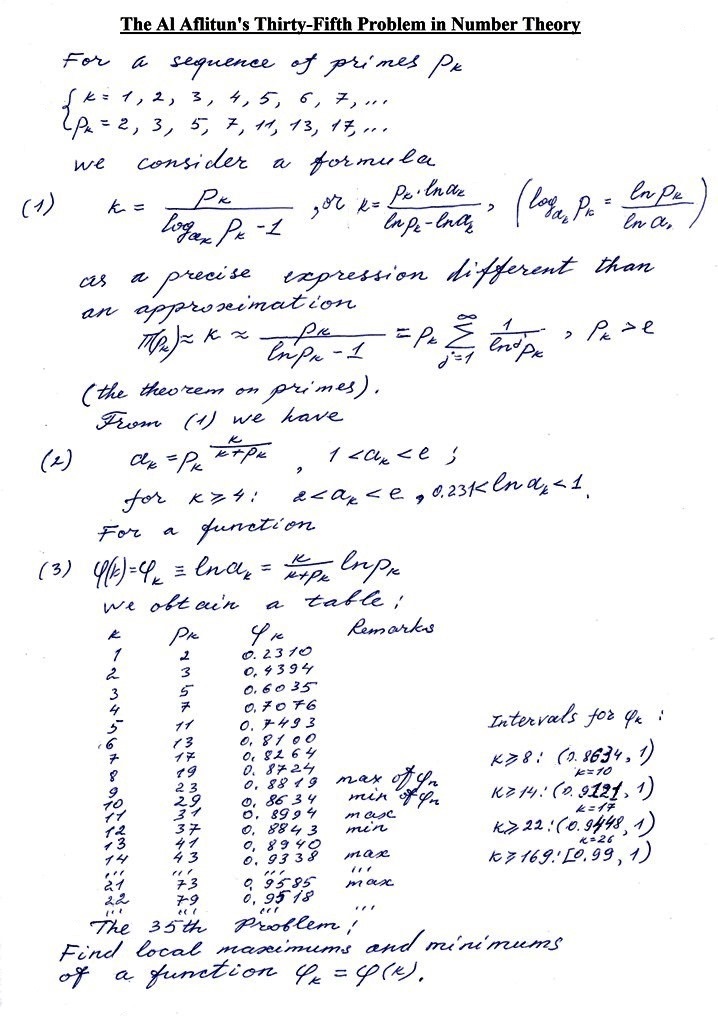 The Al Aflitun's Thirty-Fifth Problem in Number Theory
For a sequence of primes Pk
{ k = 1, 2, 3, 4, 5, 6, 7, ...
Pk = 2, 3, 5, 7, 11, 13, 17, ...
we consider a formula
(1) k = Pk / (log_ak Pk - 1), or k = Pk · ln ak / (ln Pk - ln ak), (log_ak Pk = ln Pk / ln ak)
as a precise expression different than
an approximation
π(Pk) ≈ k ≈ Pk / (ln Pk - 1) = Pk ∑_{j=1}^{∞} 1 / ln^j Pk, Pk > e
(the theorem on primes).
From (1) we have
(2) ak = Pk^{k/(k+Pk)}, 1 < ak < e ;
for k ≥ 4: 2 < ak < e, 0.231 < ln ak < 1.
For a function
(3) φ(k) = φk ≡ ln ak = k/(k+Pk) ln Pk
we obtain a table:
k Pk φk Remarks
1 2 0.2310
2 3 0,4394
3 5 0.6035
4 7 0,7076
5 11 0.7493
6 13 0,8100
7 17 0,8264
8 19 0.8724
9 23 0,8819 max of φn
10 29 0,8634 min of φn
11 31 0.8994 max
12 37 0.8843 min
13 41 0,8940
14 43 0.9338 max
''' ''' ''' '''
21 73 0,9585 max
22 79 0,9518
''' ''' ''' ...
Intervals for φk :
k ≥ 8: (0.8634, 1)
k=10
k ≥ 14: (0.9121, 1)
k=17
k ≥ 22: (0.9448, 1)
k=26
k ≥ 169: [0.99, 1)
The 35th Problem:
Find local maximums and minimums
of a function φk = φ(k).